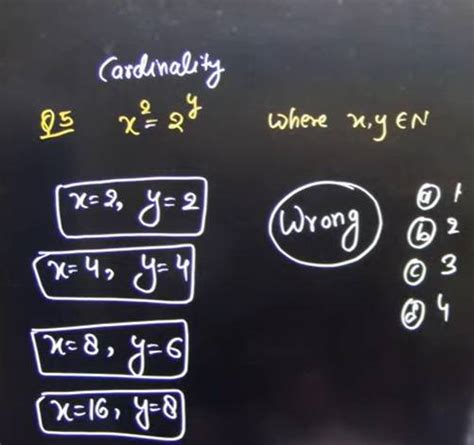 Cardinality
Q5 x² = 2^y where x, y ∈ N
x=2, y=2
x=4, y=4
x=8, y=6
x=16, y=8
Wrong
(a) 1
(b) 2
(c) 3
(d) 4